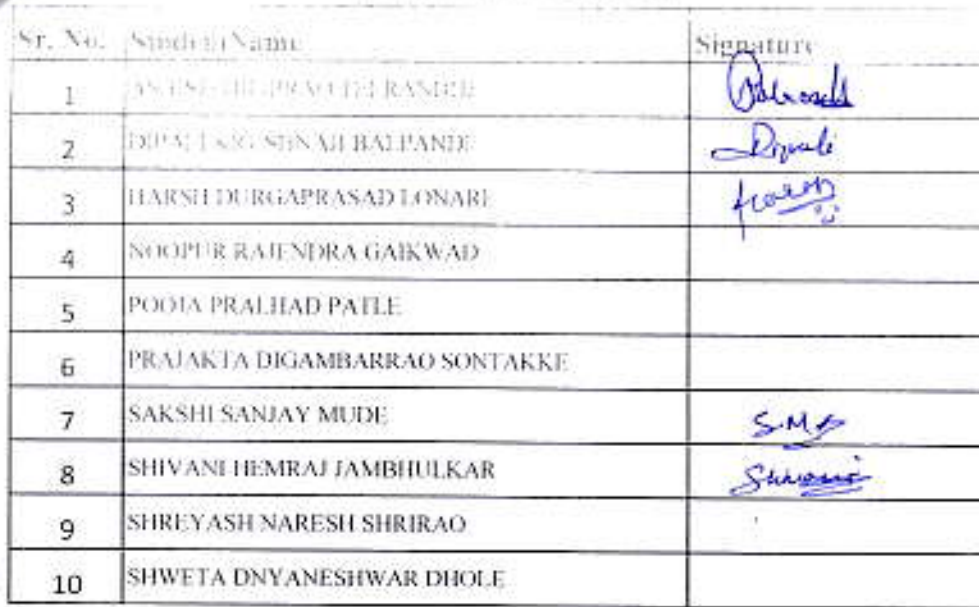 Sr. No. Student Name Signature
1
2 BALPANDE Dipali
3 HARSH DURGAPRASAD LONARE Harsh
4 NOOPUR RAJENDRA GAIKWAD
5 POOJA PRALHAD PATLE
6 PRAJAKTA DIGAMBARRAO SONTAKKE
7 SAKSHI SANJAY MUDE S.M.
8 SHIVANI HEMRAJ JAMBHULKAR Shivani
9 SHREYASH NARESH SHRIRAO
10 SHWETA DNYANESHWAR DHOLE